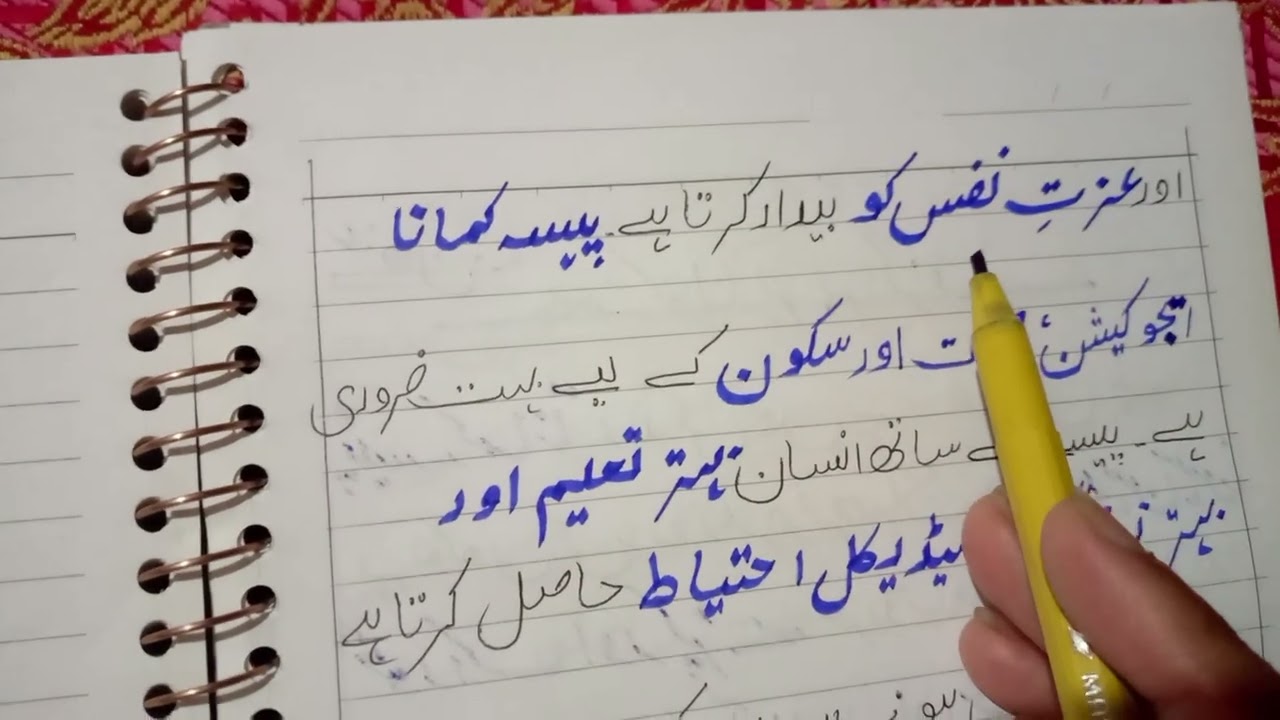 اور عزتِ نفس کو بیدار کرتا ہے۔ پیسہ کمانا
ایجوکیشن، اور سکون کے لیے بہت ضروری
ہے۔ ساتھ انسان بہتر تعلیم اور
بہتر میڈیکل احتیاط حاصل کرتا ہے